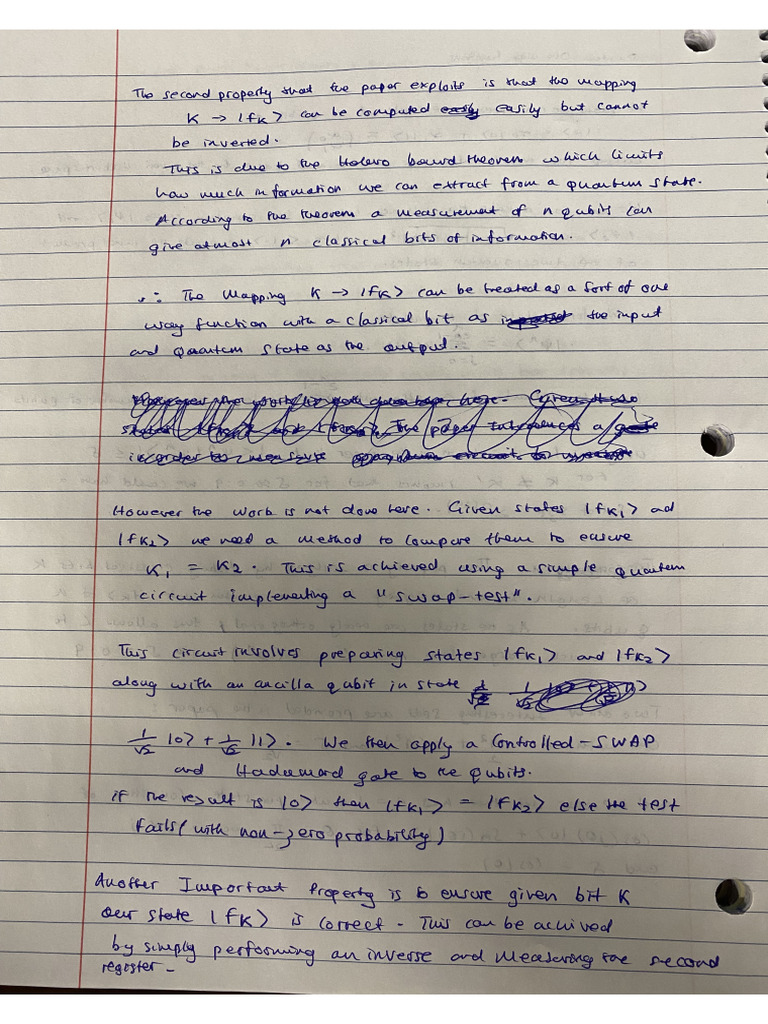 The second property that the paper exploits is that the mapping
K → |fK⟩ can be computed easily easily but cannot
be inverted.
This is due to the Holevo bound theorem which limits
how much information we can extract from a quantum state.
According to the theorem a measurement of n qubits can
give atmost n classical bits of information.
∴ The mapping K → |fK⟩ can be treated as a sort of one
way function with a classical bit as the input
and quantum state as the output.
However the work is not done here. Given states |fK1⟩ and
|fK2⟩ we need a method to compare them to ensure
K1 = K2. This is achieved using a simple quantum
circuit implementing a "swap-test".
This circuit involves preparing states |fK1⟩ and |fK2⟩
along with an ancilla qubit in state
1/√2 |0⟩ + 1/√2 |1⟩. We then apply a controlled-SWAP
and Hadamard gate to the qubits.
if the result is |0⟩ then |fK1⟩ = |fK2⟩ else the test
fails (with non-zero probability)
Another Important Property is to ensure given bit K
our state |fK⟩ is correct. This can be achived
by simply performing an inverse and measuring the second
register.